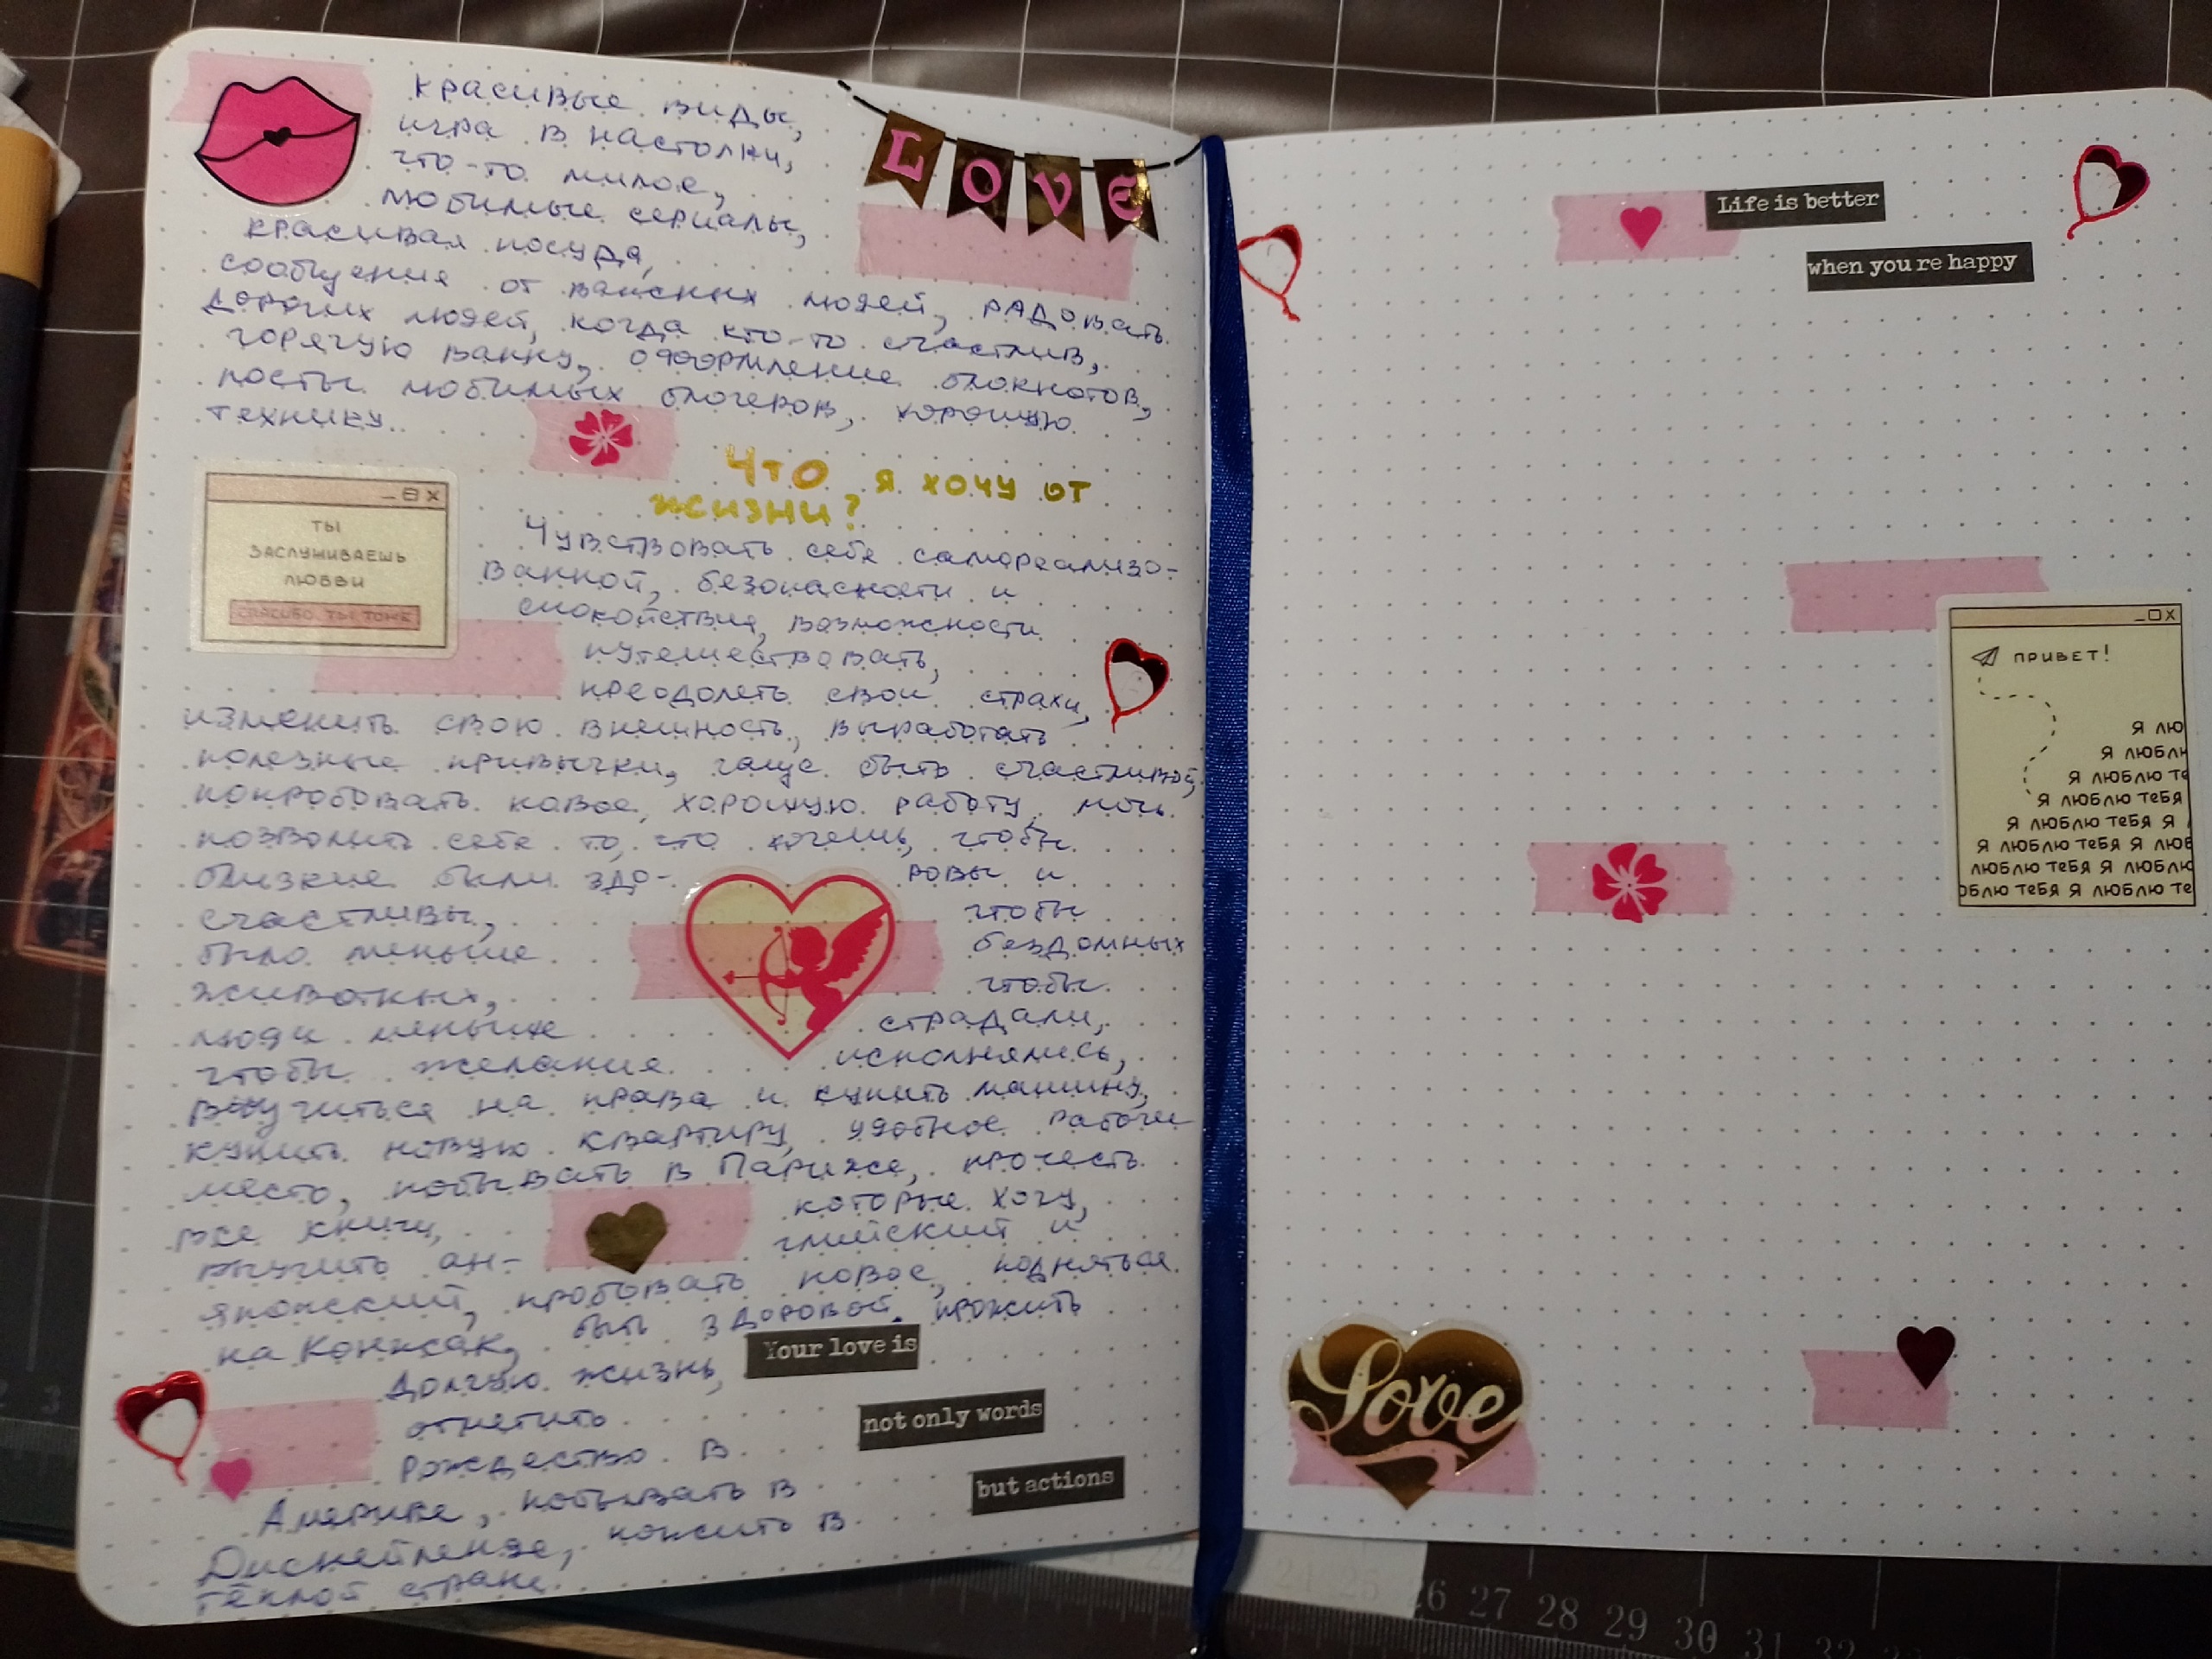 красивые виды,
игра в настолки,
что-то милое,
любимые сериалы,
красивая посуда,
сообщения от важных людей, радовать
дорогих людей, когда кто-то счастлив,
горячую ванну, оформление блокнотов,
посты любимых блогеров, хорошую
технику.
LOVE
Что я хочу от
жизни?
ТЫ
ЗАСЛУЖИВАЕШЬ
ЛЮБВИ
СПАСИБО, ТЫ ТОЖЕ
Чувствовать себя самореализо-
ванной, безопасности и
спокойствия, возможности
путешествовать,
преодолеть свои страхи,
изменить свою внешность, выработать
полезные привычки, чаще быть счастливой,
попробовать новое, хорошую работу, мочь
позволить себе то, что хочешь, чтобы
близкие были здо- ровы и
счастливы, чтобы
было меньше бездомных
животных, чтобы
люди меньше страдали,
чтобы желания исполнялись,
выучиться на права и купить машину,
купить новую квартиру, удобное рабочее
место, побывать в Париже, прочесть
все книги, которые хочу,
выучить ан- глийский и
японский, пробовать новое, подняться
на Конжак, быть здоровой, прожить
долгую жизнь,
отметить
Рождество в
Америке, побывать в
Диснейленде, пожить в
тёплой стране.
Your love is
not only words
but actions
Life is better
when you're happy
ПРИВЕТ!
Я ЛЮ
Я ЛЮБЛ
Я ЛЮБЛЮ ТЕ
Я ЛЮБЛЮ ТЕБЯ
Я ЛЮБЛЮ ТЕБЯ Я
Я ЛЮБЛЮ ТЕБЯ Я ЛЮБ
ЛЮБЛЮ ТЕБЯ Я ЛЮБЛЮ
ОБЛЮ ТЕБЯ Я ЛЮБЛЮ ТЕ
Love
22 24 25 26 27 28 29 30 31 32